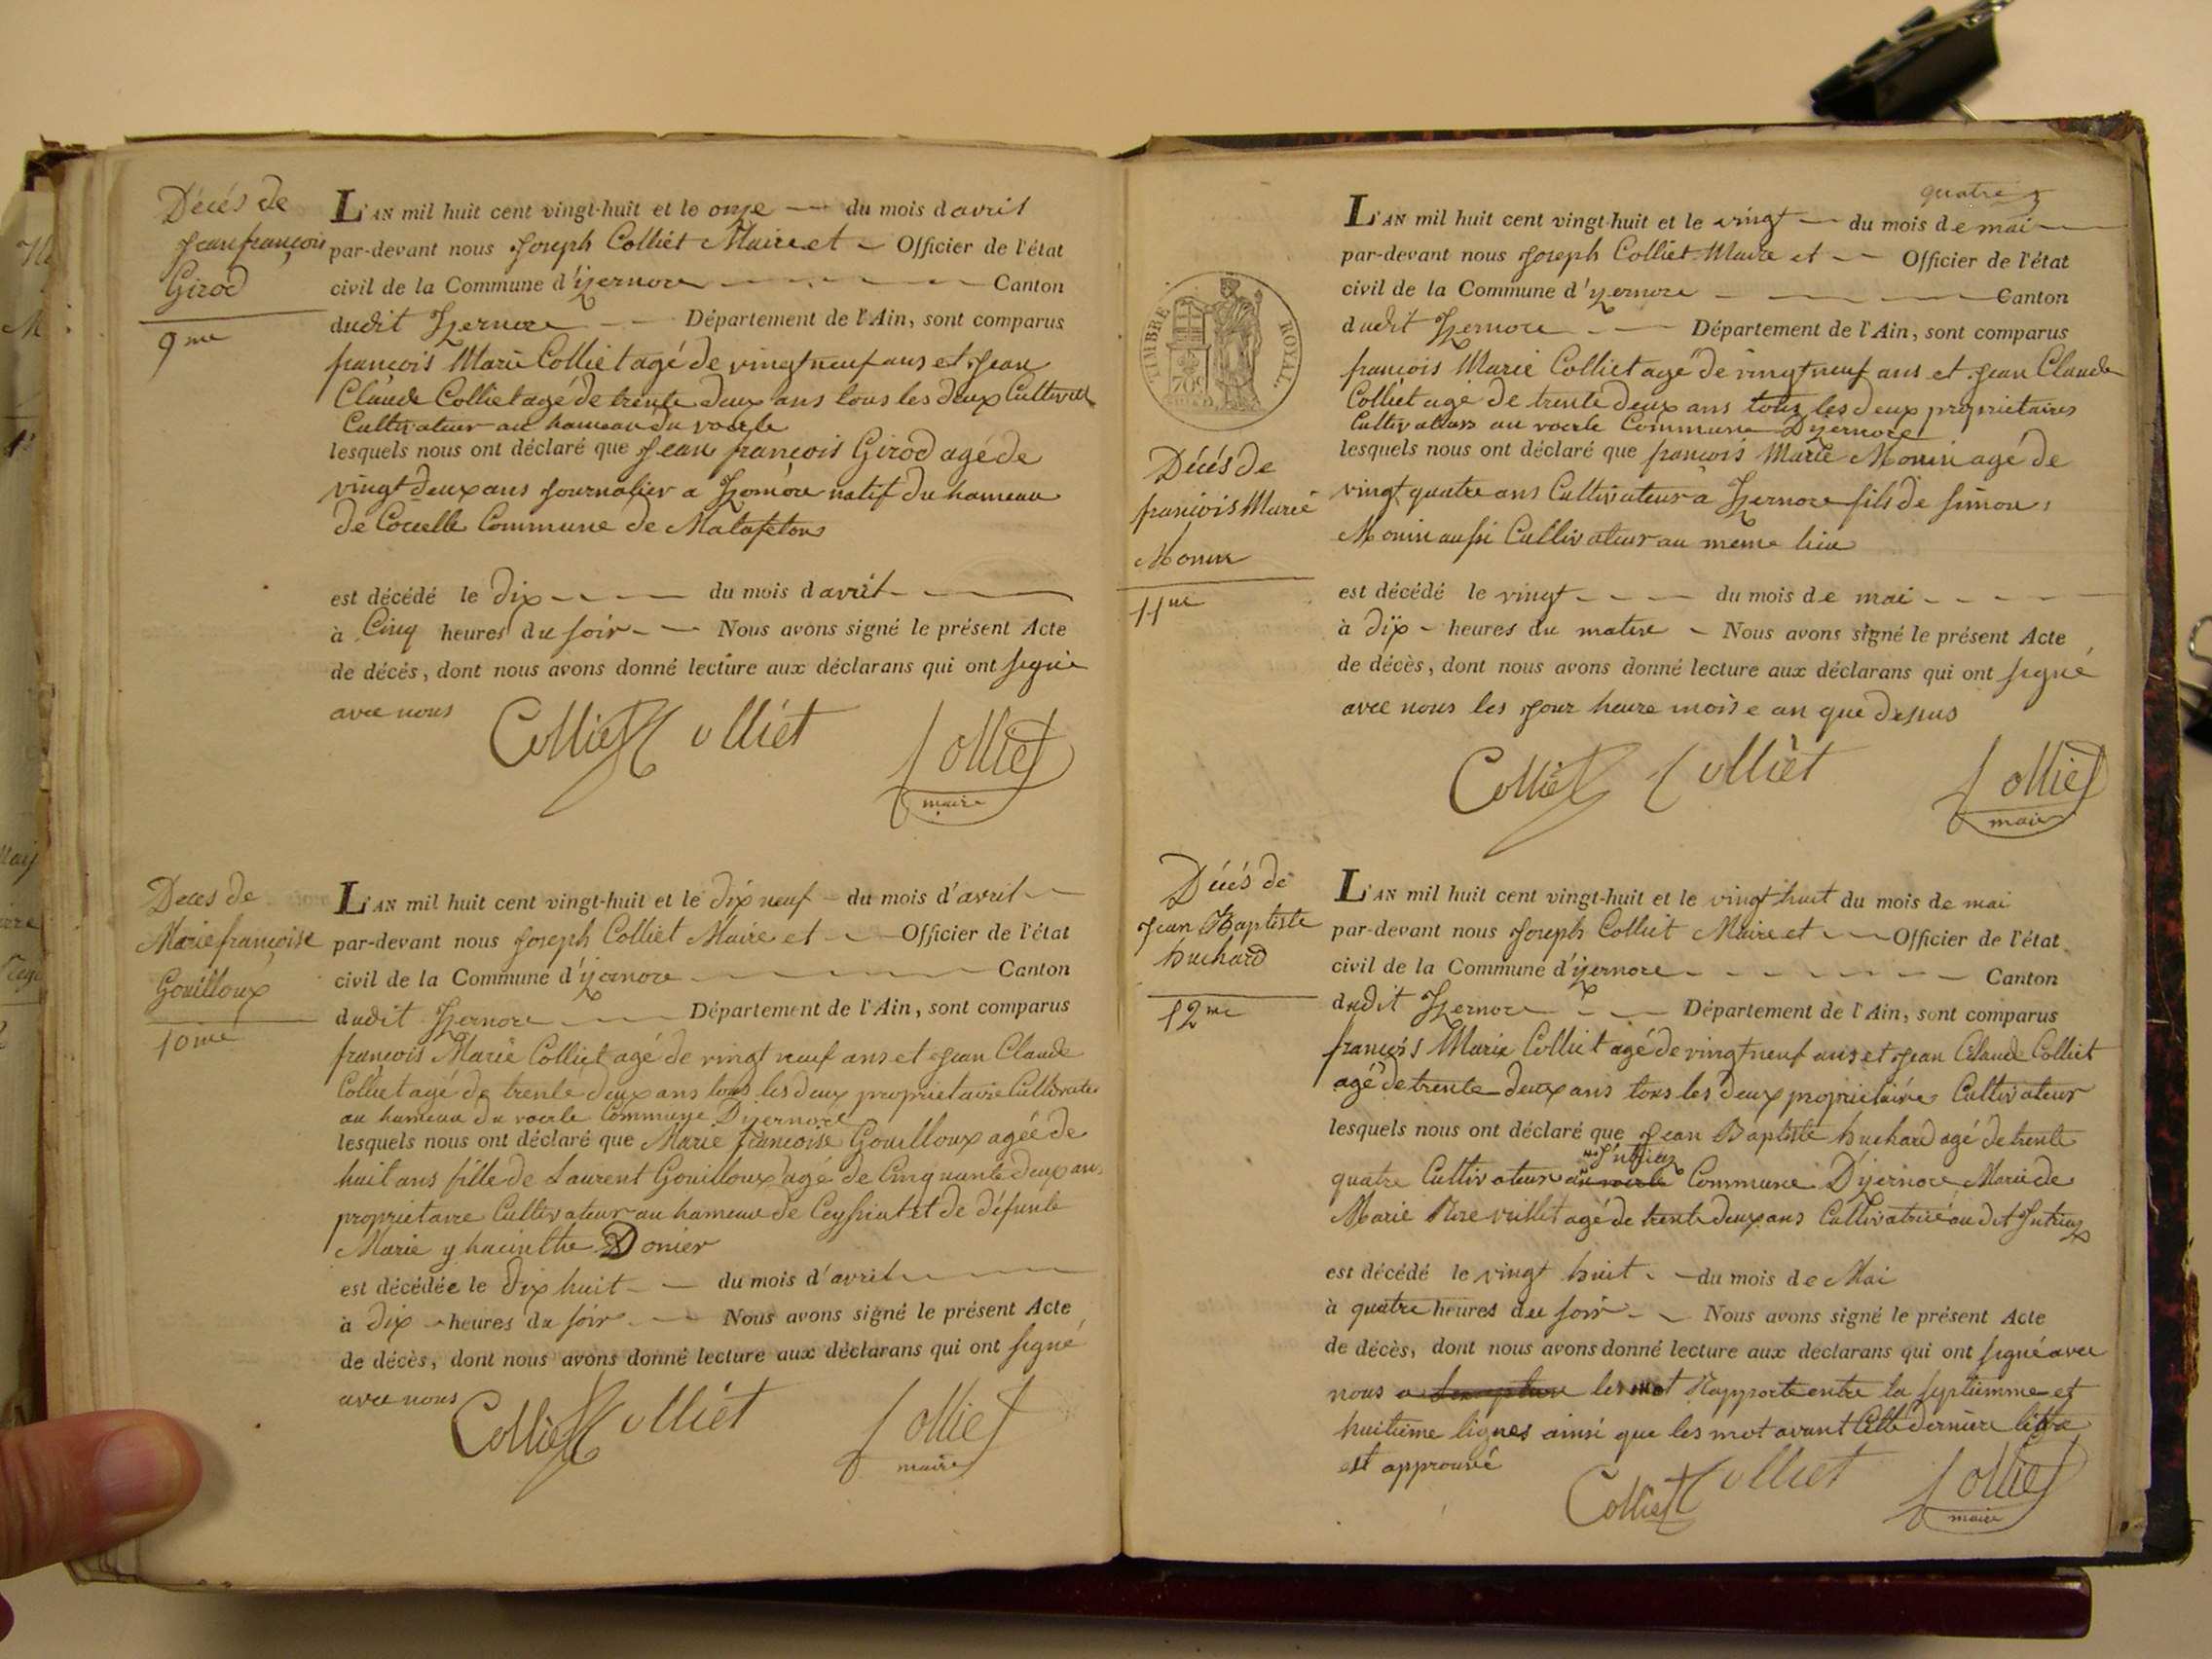 Décés de
Jean françois
Girod
9me
L'AN mil huit cent vingt-huit et le onze du mois d avril
par-devant nous Joseph Colliet Maire et Officier de l'état
civil de la Commune d'izernore Canton
dudit Izernore Département de l'Ain, sont comparus
françois Marie Colliet agé de vingt neuf ans et Jean
Claude Colliet agé de trente deux ans tous les deux
Cultivateur au hameau du voerle
lesquels nous ont déclaré que Jean françois Girod agé de
vingt deux ans Journalier a natif du hameau
de Commune de
est décédé le dix du mois d avril
à Cinq heures du soir Nous avons signé le présent Acte
de décès, dont nous avons donné lecture aux déclarans qui ont signé
avec nous
Colliet Colliet Colliet
maire
Deces de
Marie françoise
Gouilloux
10me
L'AN mil huit cent vingt-huit et le dix neuf du mois d'avril
par-devant nous Joseph Colliet Maire et Officier de l'état
civil de la Commune d'izernore Canton
dudit Izernore Département de l'Ain, sont comparus
françois Marie Colliet agé de vingt neuf ans et Jean Claude
Colliet agé de trente deux ans tous les deux proprietaire
au hameau du voerle Commune Dizernore
lesquels nous ont déclaré que Marie françoise Gouilloux agée de
huit ans fille de Laurent Gouilloux agé de Cinquante deux ans
proprietaire Cultivateur au hameau de Ceyssiat et de défunte
Marie y hacinthe Domer
est décédée le dix huit du mois d'avril
à dix heures du soir Nous avons signé le présent Acte
de décès, dont nous avons donné lecture aux déclarans qui ont signé
avec nous
Colliet Colliet Colliet
maire
quatre
TIMBRE ROYAL
70c
Décés de
françois Marie
Monin
11me
L'AN mil huit cent vingt-huit et le vingt du mois de mai
par-devant nous Joseph Colliet Maire et Officier de l'état
civil de la Commune d'yzernore Canton
dudit Izernore Département de l'Ain, sont comparus
françois Marie Colliet agé de vingt neuf ans et Jean Claude
Colliet agé de trente deux ans tous les deux proprietaires
Cultivateurs au voerle Commune Dyzernore
lesquels nous ont déclaré que françois Marie Monin agé de
vingt quatre ans Cultivateur à Izernore fils de simon
Monin aussi Cultivateur au meme lieu
est décédé le vingt du mois de mai
à dix heures du matin Nous avons signé le présent Acte
de décès, dont nous avons donné lecture aux déclarans qui ont signé
avec nous les Jour heure mois e an que dessus
Colliet Colliet Colliet
maire
Décés de
Jean Baptiste
huchard
12me
L'AN mil huit cent vingt-huit et le vingt huit du mois de mai
par-devant nous Joseph Colliet Maire et Officier de l'état
civil de la Commune d'izernore Canton
dudit Izernore Département de l'Ain, sont comparus
françois Marie Colliet agé de vingt neuf ans et Jean Claude Colliet
agé de trente deux ans tous les deux proprietaire Cultivateur
lesquels nous ont déclaré que Jean Baptiste huchard agé de trente
quatre Cultivateur au voerle Commune D'izernore Marié de
Marie agé de trente deux ans Cultivatrice au dit Intriaz
est décédé le vingt huit du mois de Mai
à quatre heures du soir Nous avons signé le présent Acte
de décès, dont nous avons donné lecture aux déclarans qui ont signé avec
nous les mot Rapporte entre la septiemme et
huitieme lignes ainsi que les mot avant Cette derniere
est approuvé
Colliet Colliet Colliet
maire